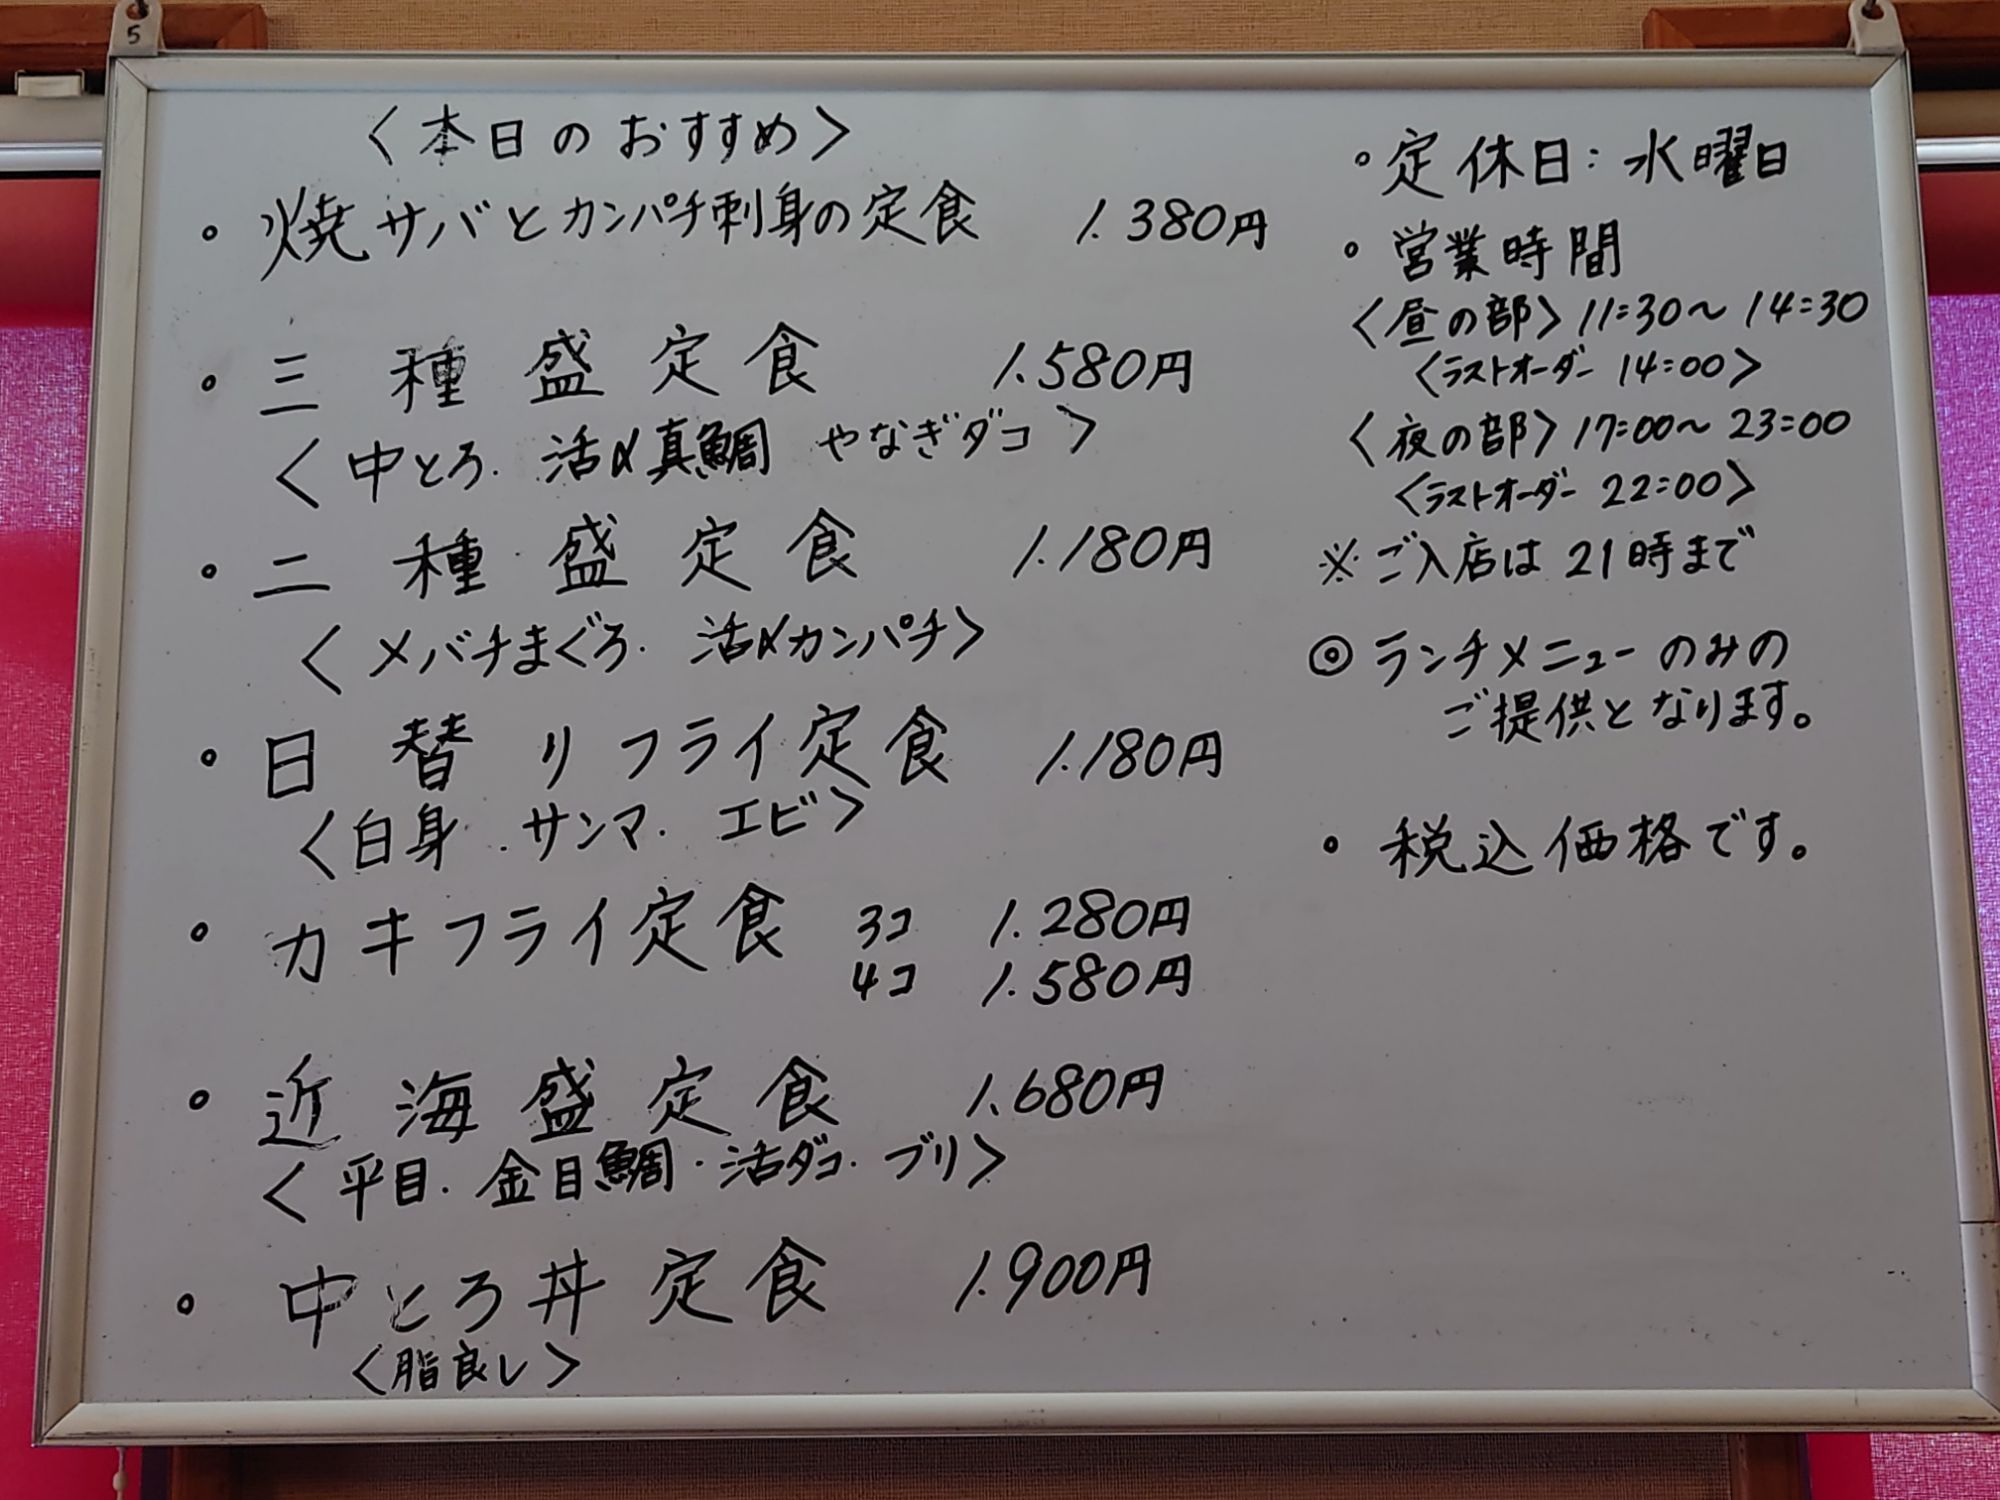 〈本日のおすすめ〉
。焼サバとカンパチ刺身の定食 1.380円
。三種盛定食 1.580円
〈中とろ. 活〆真鯛 やなぎダコ〉
。二種盛定食 1.180円
〈メバチまぐろ. 活〆カンパチ〉
。日替りフライ定食 1.180円
〈白身.サンマ.エビ〉
。カキフライ定食 3コ 1.280円
4コ 1.580円
。近海盛定食 1.680円
〈平目.金目鯛.活ダコ.ブリ〉
。中とろ丼定食 1.900円
〈脂良し〉
。定休日:水曜日
。営業時間
〈昼の部〉11:30〜14:30
〈ラストオーダー 14:00〉
〈夜の部〉17:00〜23:00
〈ラストオーダー 22:00〉
※ご入店は21時まで
◎ランチメニューのみの
ご提供となります。
。税込価格です。
5